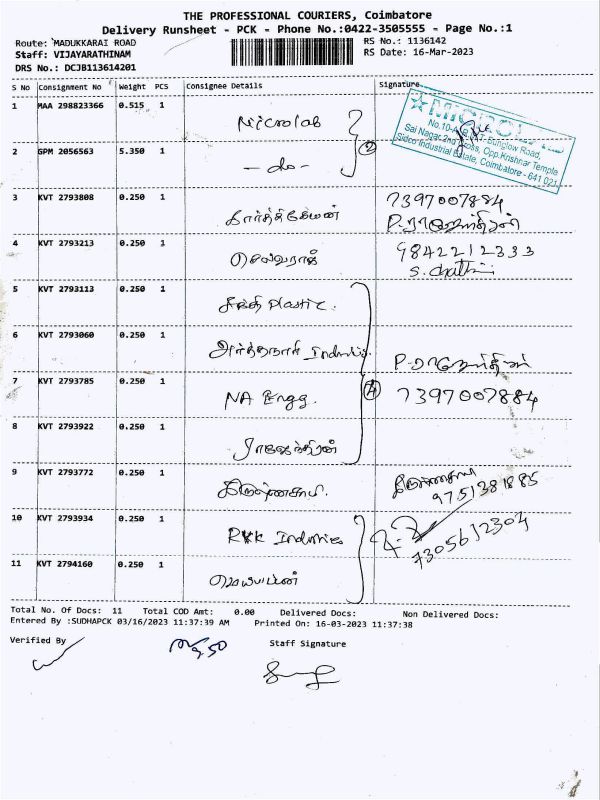 THE PROFESSIONAL COURIERS, Coimbatore
Delivery Runsheet - PCK - Phone No.:0422-3505555 - Page No.:1
Route: MADUKKARAI ROAD
RS No.: 1136142
Staff: VIJAYARATHINAM
RS Date: 16-Mar-2023
DRS No.: DCJB113614201
S No Consignment No Weight PCS Consignee Details Signature
1 MAA 298823366 0.515 1 Microlab
No.10- Bunglow Road,
Sai Nagar, 2nd Cross, Opp.Krishnar Temple
Sidco Industrial Estate, Coimbatore - 641 021
2 GPM 2056563 5.350 1 - do - 2
3 KVT 2793808 0.250 1 கார்த்திகேயன் 7397007884
4 KVT 2793213 0.250 1 செல்வராஜ் 9842212333
5 KVT 2793113 0.250 1 சக்தி Plastic.
6 KVT 2793060 0.250 1
7 KVT 2793785 0.250 1 NA Engg. 4 7397007884
8 KVT 2793922 0.250 1 ராஜேந்திரன்
9 KVT 2793772 0.250 1 கிருஷ்ணசாமி. கிருஷ்ணசாமி
9751381885
10 KVT 2793934 0.250 1 RKK Industries
7305612304
11 KVT 2794160 0.250 1 ஜெயபாலன்
Total No. Of Docs: 11 Total COD Amt: 0.00 Delivered Docs: Non Delivered Docs:
Entered By :SUDHAPCK 03/16/2023 11:37:39 AM Printed On: 16-03-2023 11:37:38
Verified By Staff Signature